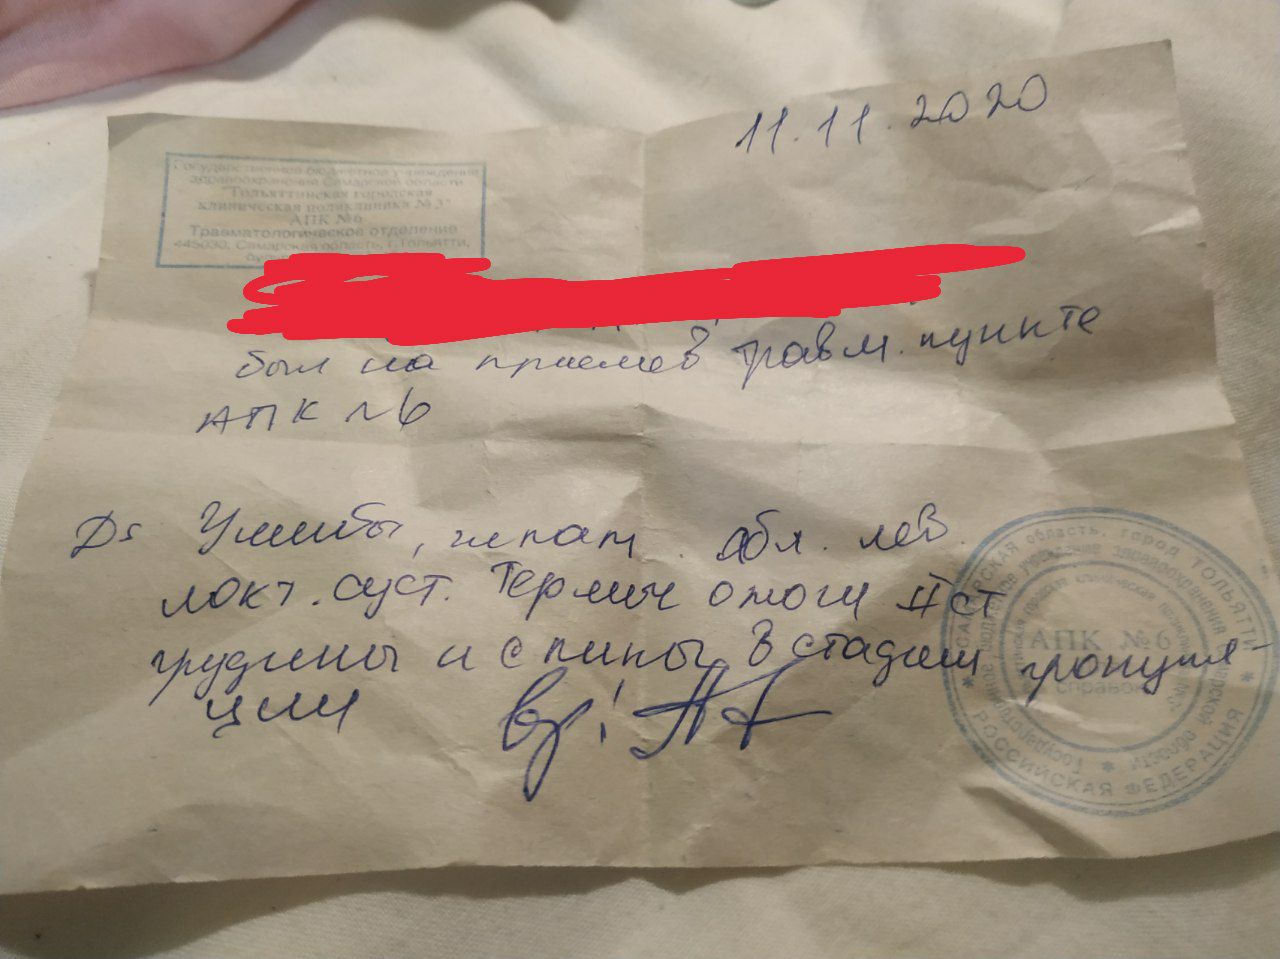 11.11.2020
Государственное бюджетное учреждение
здравоохранения Самарской области
"Тольяттинская городская
клиническая поликлиника №3"
АПК №6
Травматологическое отделение
445030, Самарская область, г.Тольятти,
был на приеме в травм. пункте
АПК №6
Ds Ушибы, гематом. обл. лев.
локт. суст. Термич ожоги II ст
грудины и спины в стадии грануля-
ции вр:
САМАРСКАЯ область, город ТОЛЬЯТТИ
РОССИЙСКАЯ ФЕДЕРАЦИЯ
АПК №6
справок